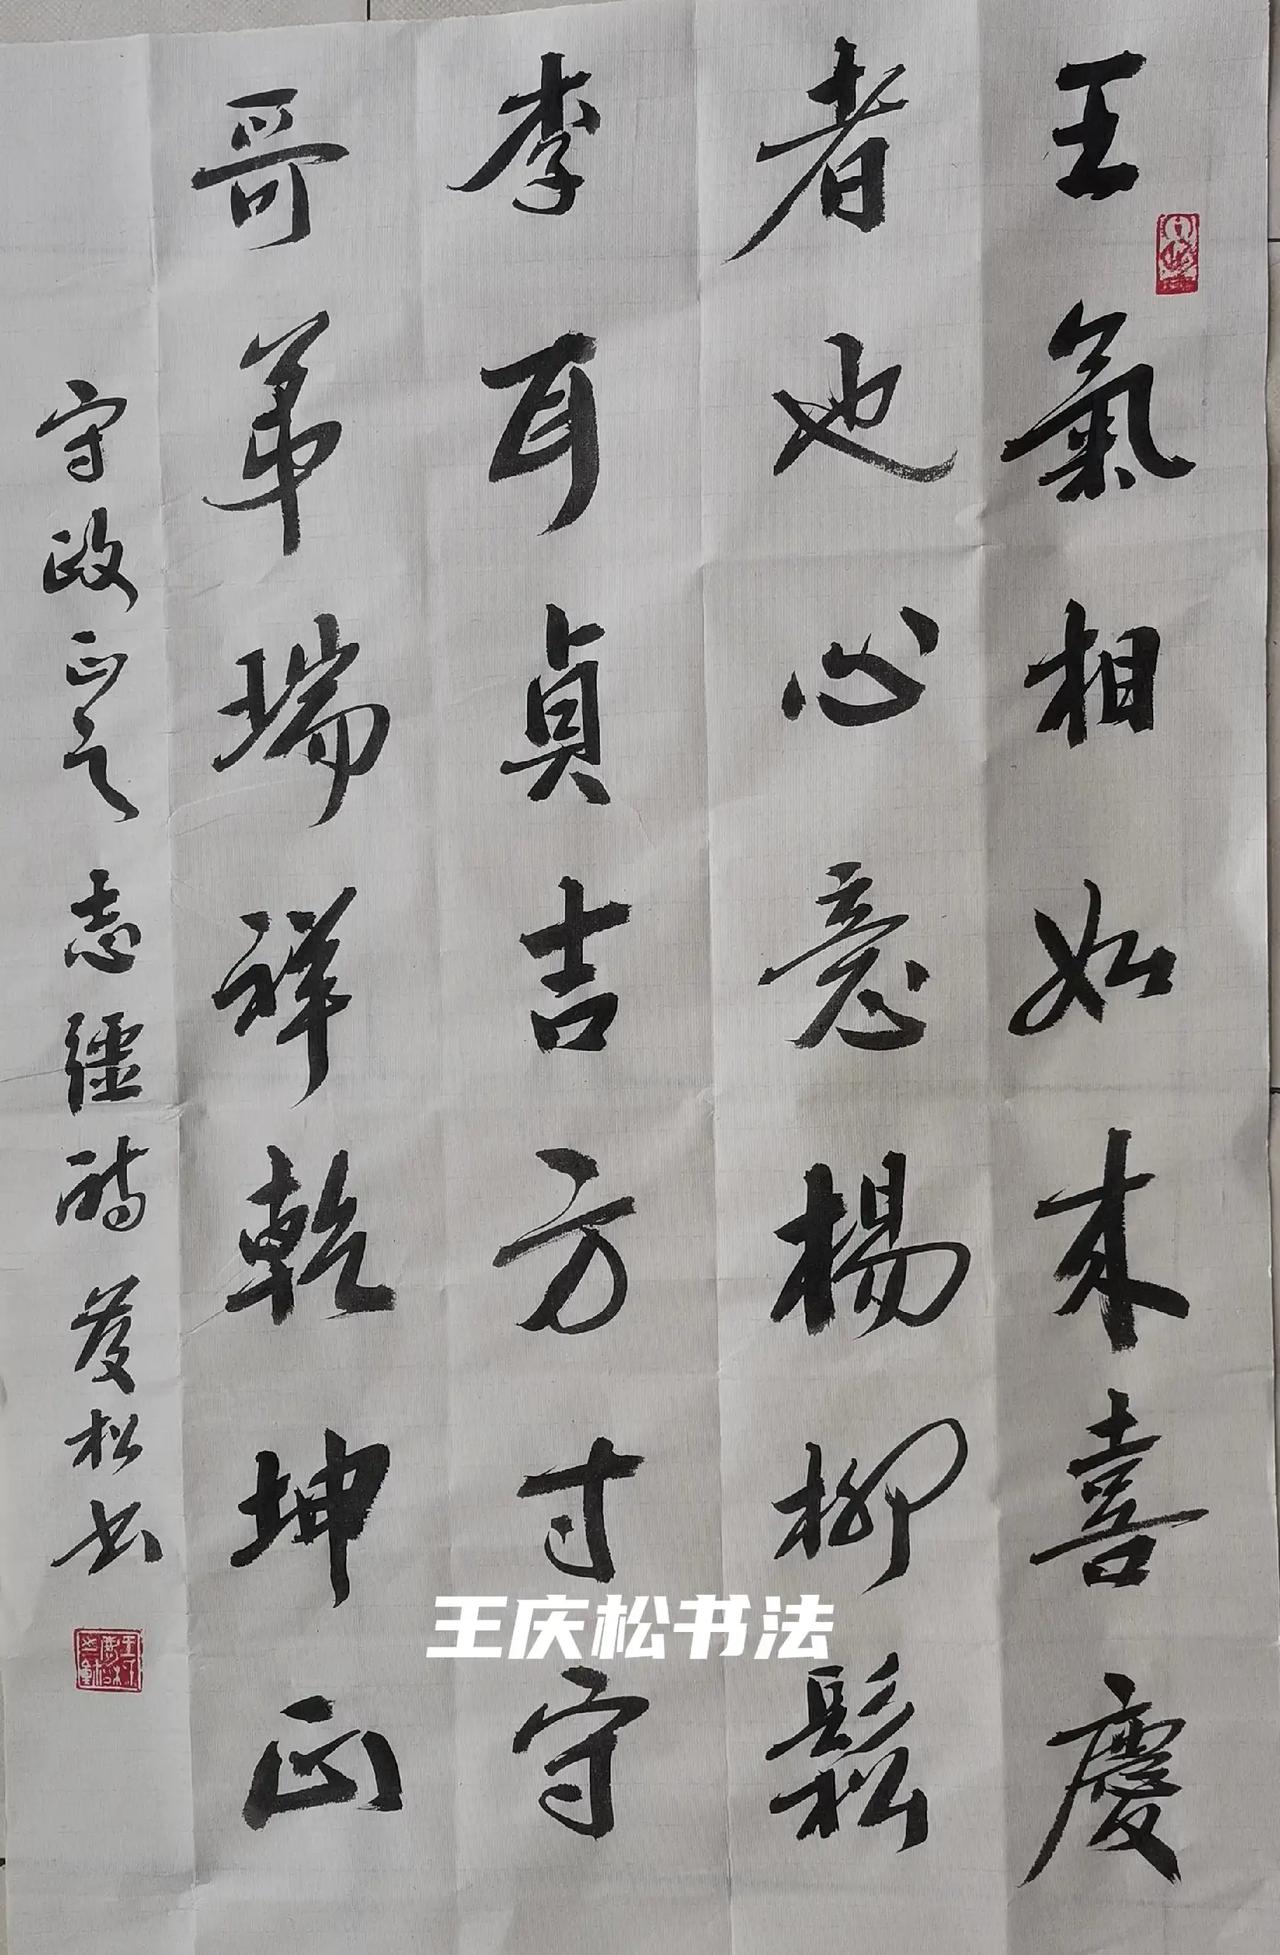 王氣相如来喜慶
者也心意楊柳鬆
李耳貞吉方寸守
哥弟瑞祥乾坤正
守政正之 志疆詩 庆松书
王庆松书法